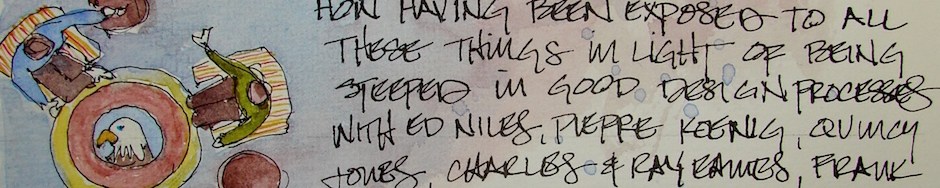 HOW HAVING BEEN EXPOSED TO ALL
THESE THINGS IN LIGHT OF BEING
STEEPED IN GOOD DESIGN PROCESSES
WITH ED NILES, PIERRE KOENIG, QUINCY
JONES, CHARLES & RAY EAMES, FRANK